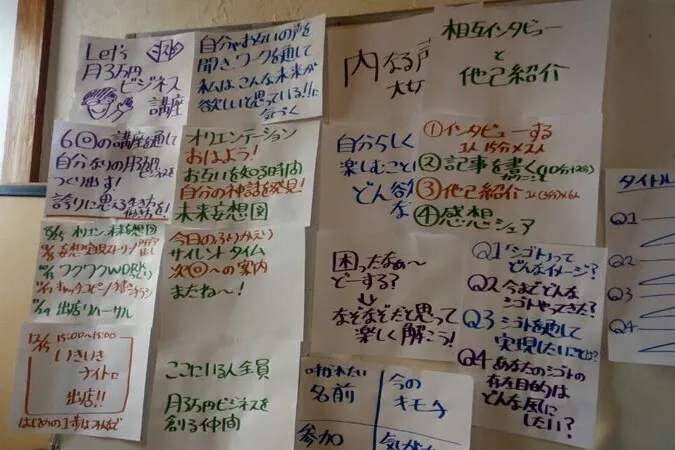 Let's
月3万円
ビジネス
講座
自分やお互いの声を
聞きワークを通して
私はこんな未来が
欲しいと思っている!!に
気づく
内なる声
大女
相互インタビュー
と
他己紹介
6回の講座を通して
自分なりの月3万円ビジネスを
つくり出す!
誇りに思える生き方
働き方を!
オリエンテーション
おはよう!
お互いを知る時間
自分の神話を発見!
未来妄想図
自分らしく
楽しむことに
どん欲
な
①インタビューする
1人15分×2人
②記事を書く
③他己紹介
④感想シェア
タイトル
Q1
Q2
Q3
Q4
オリエン 未来妄想図
妄想実現ストーリー
ワクワクWORK
出店リハーサル
今日のふりかえり
サイレントタイム
次回への案内
またね〜!
困ったなぁ〜
どーする?
なぞなぞだと思って
楽しく解こう!
Q1 シゴトって
どんなイメージ?
Q2 今までどんな
シゴトやってきた?
Q3 シゴトを通して
実現したいことは?
Q4 あなたのシゴトの
存在目的は
どんな風に
したい?
15:00〜18:00
いきいき
ナイトに
出店!!
はじめの1歩はみんなで
ここにいる人全員
月3万円ビジネスを
創る仲間
呼ばれたい
名前
今の
キモチ
参加